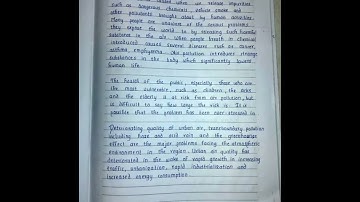 such as dangerous chemicals, vehicle smoke and
other pollutants brought about by human activities.
Many people are unaware of the serious problems
they expose the world to by releasing such harmful
substances in the air. When people breath in chemical
introduced causes several diseases such as cancer,
asthma, emphysema. Also pollution introduces strange
substances in the body which significantly lowers
human life.
The health of the public, especially those who are
the most vulnerable, such as children, the sick
and the elderly is at risk from air pollution, but
is difficult to say how large the risk is. It is
possible that the problem has been over-stressed in
Deteriorating quality of urban air, transboundary pollution
including haze and acid rain and the greenhouse
effect are the major problems facing the atmospheric
environment in the region. Urban air quality has
deteriorated in the wake of rapid growth in increasing
traffic, urbanization, rapid industrialization and
increased energy consumption.